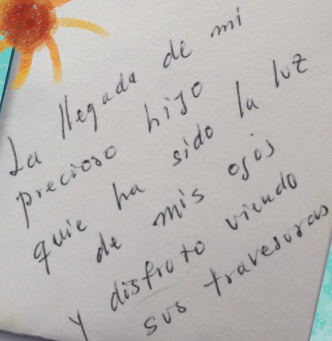 La llegada de mi
precioso hijo
quie ha sido la luz
de mis ojos
y disfroto viendo
sus travesuras